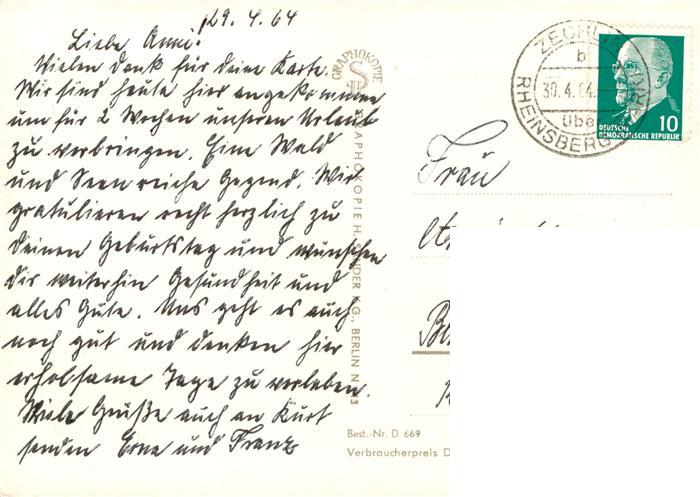 29. 4. 64
Liebe Anni!
Vielen Dank für deine Karte.
Wir sind heute hier angekommen
um für 2 Wochen unseren Urlaub
zu verbringen. Eine Wald
und Seenreiche Gegend. Wir
gratulieren recht herzlich zu
deinen Geburtstag und wünschen
dir weiterhin Gesundheit und
alles Gute. Uns geht es auch
noch gut und denken hier
erholsame Tage zu verleben.
Viele Grüße auch an Kurt
senden Erna und Franz
GRAPHOKOPIE
GRAPHOKOPIE H. KG., BERLIN N
ZECHLIN
30. 4. 64
über
RHEINSBERG
DEUTSCHE
DEMOKRATISCHE REPUBLIK
10
Frau
Best.-Nr. D 669
Verbraucherpreis D